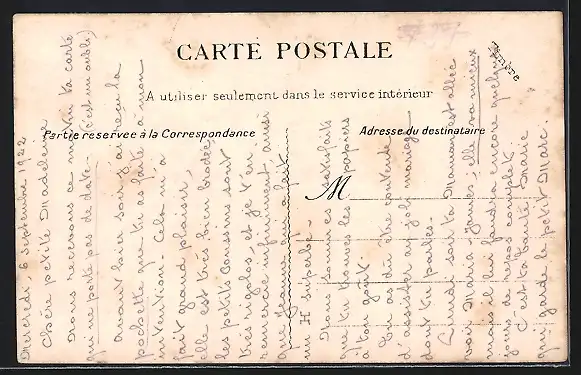 CARTE POSTALE
A utiliser seulement dans le service intérieur
Partie réservée à la Correspondance
Adresse du destinataire
M
Mercredi, 6 septembre 1922
Chère petite Madeleine
Nous recevons ce matin ta carte
qui ne porte pas de date - (c'est un oubli)
avant hier soir j'ai reçu la
pochette que tu as faite à mon
intention. Cela m'a
fait grand plaisir,
elle est très bien brodée,
les petits cousins sont
très rigolos, et je t'en
remercie infiniment ainsi
que Jeanne qui a fait
un H superbe.
Nous sommes satisfaits
que tu trouves les papiers
à ton goût.
Tu as dû être contente
d'assister au joli mariage
dont tu parles.
Lundi soir ta Maman est allée
voir Maria-Agnès; elle va mieux
mais il lui faudra encore quelques
jours de repos complet.
C'est ta tante Marie
qui garde le petit Marc.